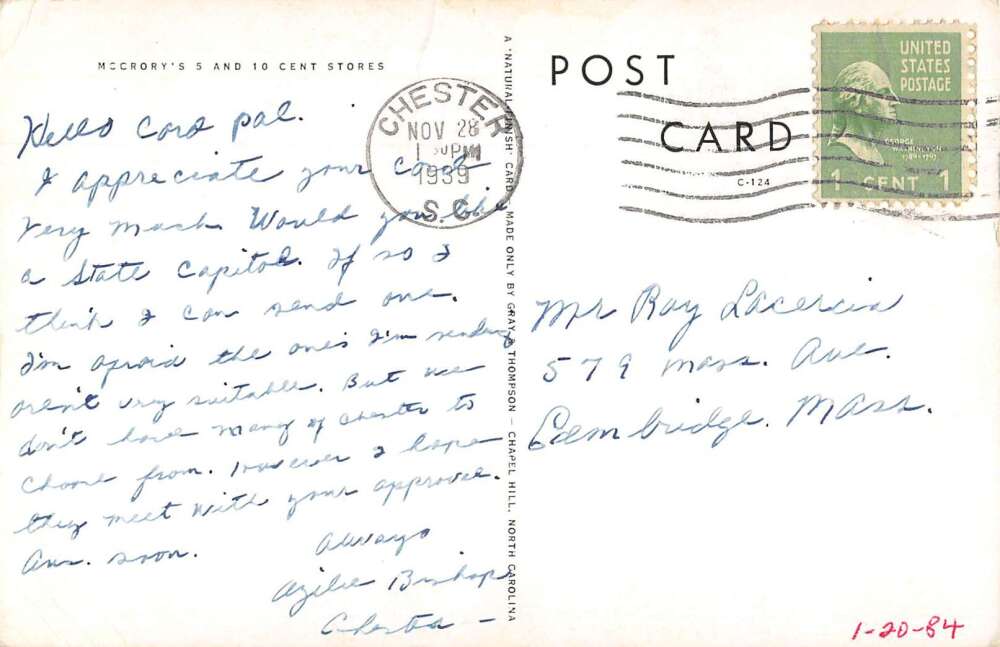 MCCRORY'S 5 AND 10 CENT STORES
Hello Card pal.
I appreciate your card
very much. Would you like
a State Capitol. If so I
think I can send one.
I'm afraid the ones I'm sending
aren't very suitable. But we
don't have many of Chester to
choose from. However I hope
they meet with your approval.
Ans. soon.
Always
Azilee Bishop
Chester –
CHESTER
NOV 28
1 30 PM
1939
S.C.
A 'NATURAL-FINISH' CARD MADE ONLY BY GRAY & THOMPSON – CHAPEL HILL, NORTH CAROLINA
POST
CARD
C-124
UNITED
STATES
POSTAGE
GEORGE
WASHINGTON
1789-1797
1 CENT 1
Mr Ray
579 Mass. Ave.
Cambridge. Mass.
1-20-84